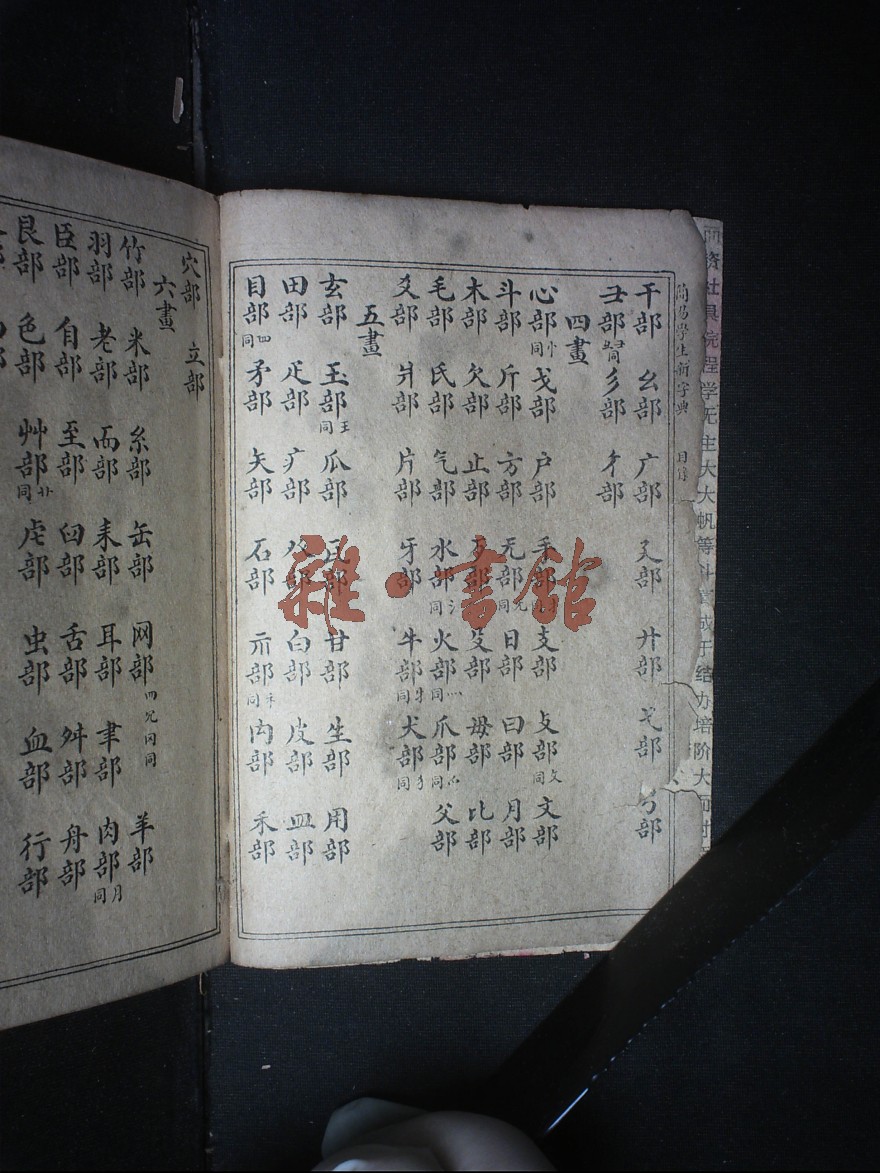 簡易學生新字典 目錄
干部 幺部 广部 廴部 廾部 弋部 弓部
彐部彑同 彡部 彳部
四畫
心部忄同 戈部 戶部 手部 支部 攴部攵同 文部
斗部 斤部 方部 无部旡同 日部 曰部 月部
木部 欠部 止部 歹部 殳部 毋部 比部
毛部 氏部 气部 水部氵同 火部灬同 爪部爫同 父部
爻部 爿部 片部 牙部 牛部牜同 犬部犭同
五畫
玄部 玉部王同 瓜部 瓦部 甘部 生部 用部
田部 疋部 疒部 癶部 白部 皮部 皿部
目部罒同 矛部 矢部 石部 示部礻同 禸部 禾部
穴部 立部
六畫
竹部 米部 糸部 缶部 网部 羊部
羽部 老部 而部 耒部 耳部 聿部 肉部月同
臣部 自部 至部 臼部 舌部 舛部 舟部
艮部 色部 艸部艹同 虍部 虫部 血部 行部
雜·書館